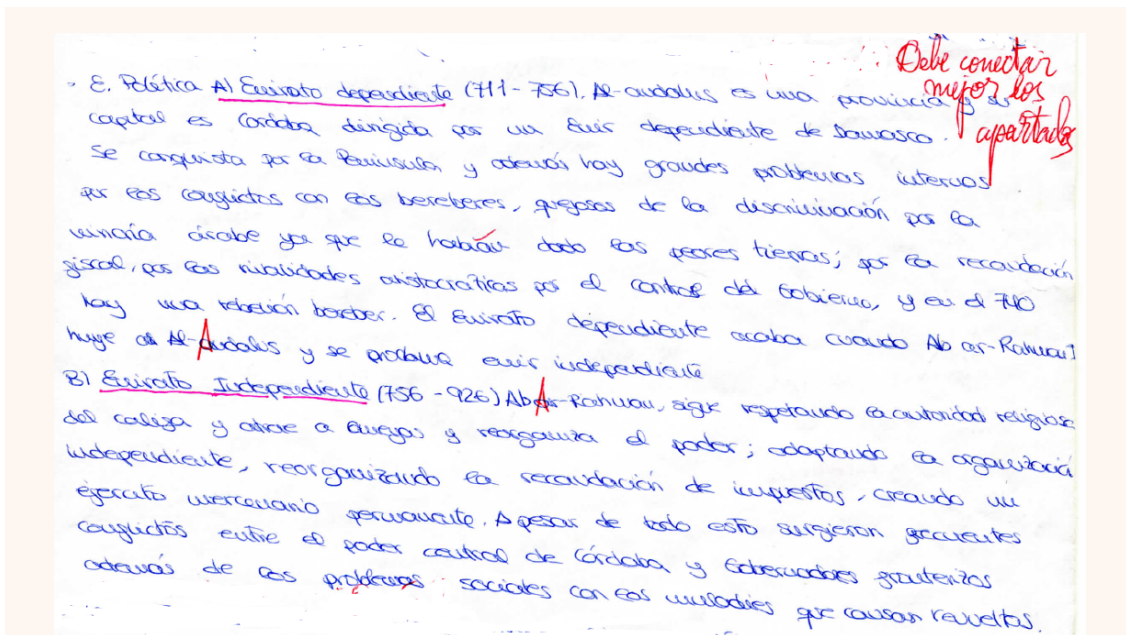 - E. Política A) Emirato dependiente (711 - 756). Al-andalus es una provincia y su
capital es Córdoba dirigida por un Emir dependiente de Damasco.
Se conquista por la Península, y además hay grandes problemas internos
por los conflictos con los bereberes, quejosos de la discriminación por la
minoría árabe ya que le habían dado las peores tierras; por la recaudación
fiscal, por las rivalidades aristocráticas por el control del Gobierno, y en el 740
hay una rebelión bereber. El Emirato dependiente acaba cuando Ab ar-Rahman I
huye a Al-Andalus y se proclama emir independiente
B) Emirato Independiente (756 - 926) Ab Ar-Rahman, sigue respetando la autoridad religiosa
del califa y atrae a Omeyas y reorganiza el poder; adaptando la organización
independiente, reorganizando la recaudación de impuestos, creando un
ejercito mercenario permanente. A pesar de todo esto surgieron frecuentes
conflictos entre el poder central de Córdoba y Gobernadores fronterizos
además de los problemas sociales con los muladíes que causan revueltas.
Debe conectar
mejor los
apartados